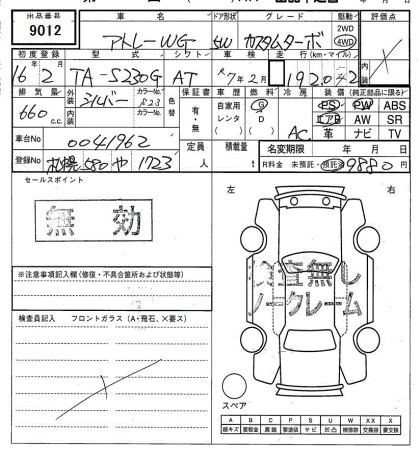 出品番号 車名 ドア形状 グレード 駆動 評価点
9012 アトレーWG 5W カスタムターボ 2WD 4WD
初度登録 型式 シフト 車検 走行(km・マイル)
16年2月 TA-S230G AT R7年2月
排気量 外装 シルバー カラーNo. S23 色替 保証書 車歴 燃料 冷房 装備(純正部品に限る)
660 c.c. 内装 カラーNo. 有・無 自家用 レンタ G D AC PS PW ABS
エアB AW SR
革 ナビ TV
車台No 0041962 定員 人 積載量 t 名変期限 年 月 日
登録No 札幌 580 や 1723 R料金 未預託・預託済 9880円
セールスポイント
無効
左 右
検査無し
ノークレーム
※注意事項記入欄(修復・不具合箇所および状態等)
検査員記入 フロントガラス(A・飛石、×要ス)
スペア
A B C P S U W X XX
線キズ 要板金 腐蝕 要塗装 サビ 凹凸 補修跡 要交換